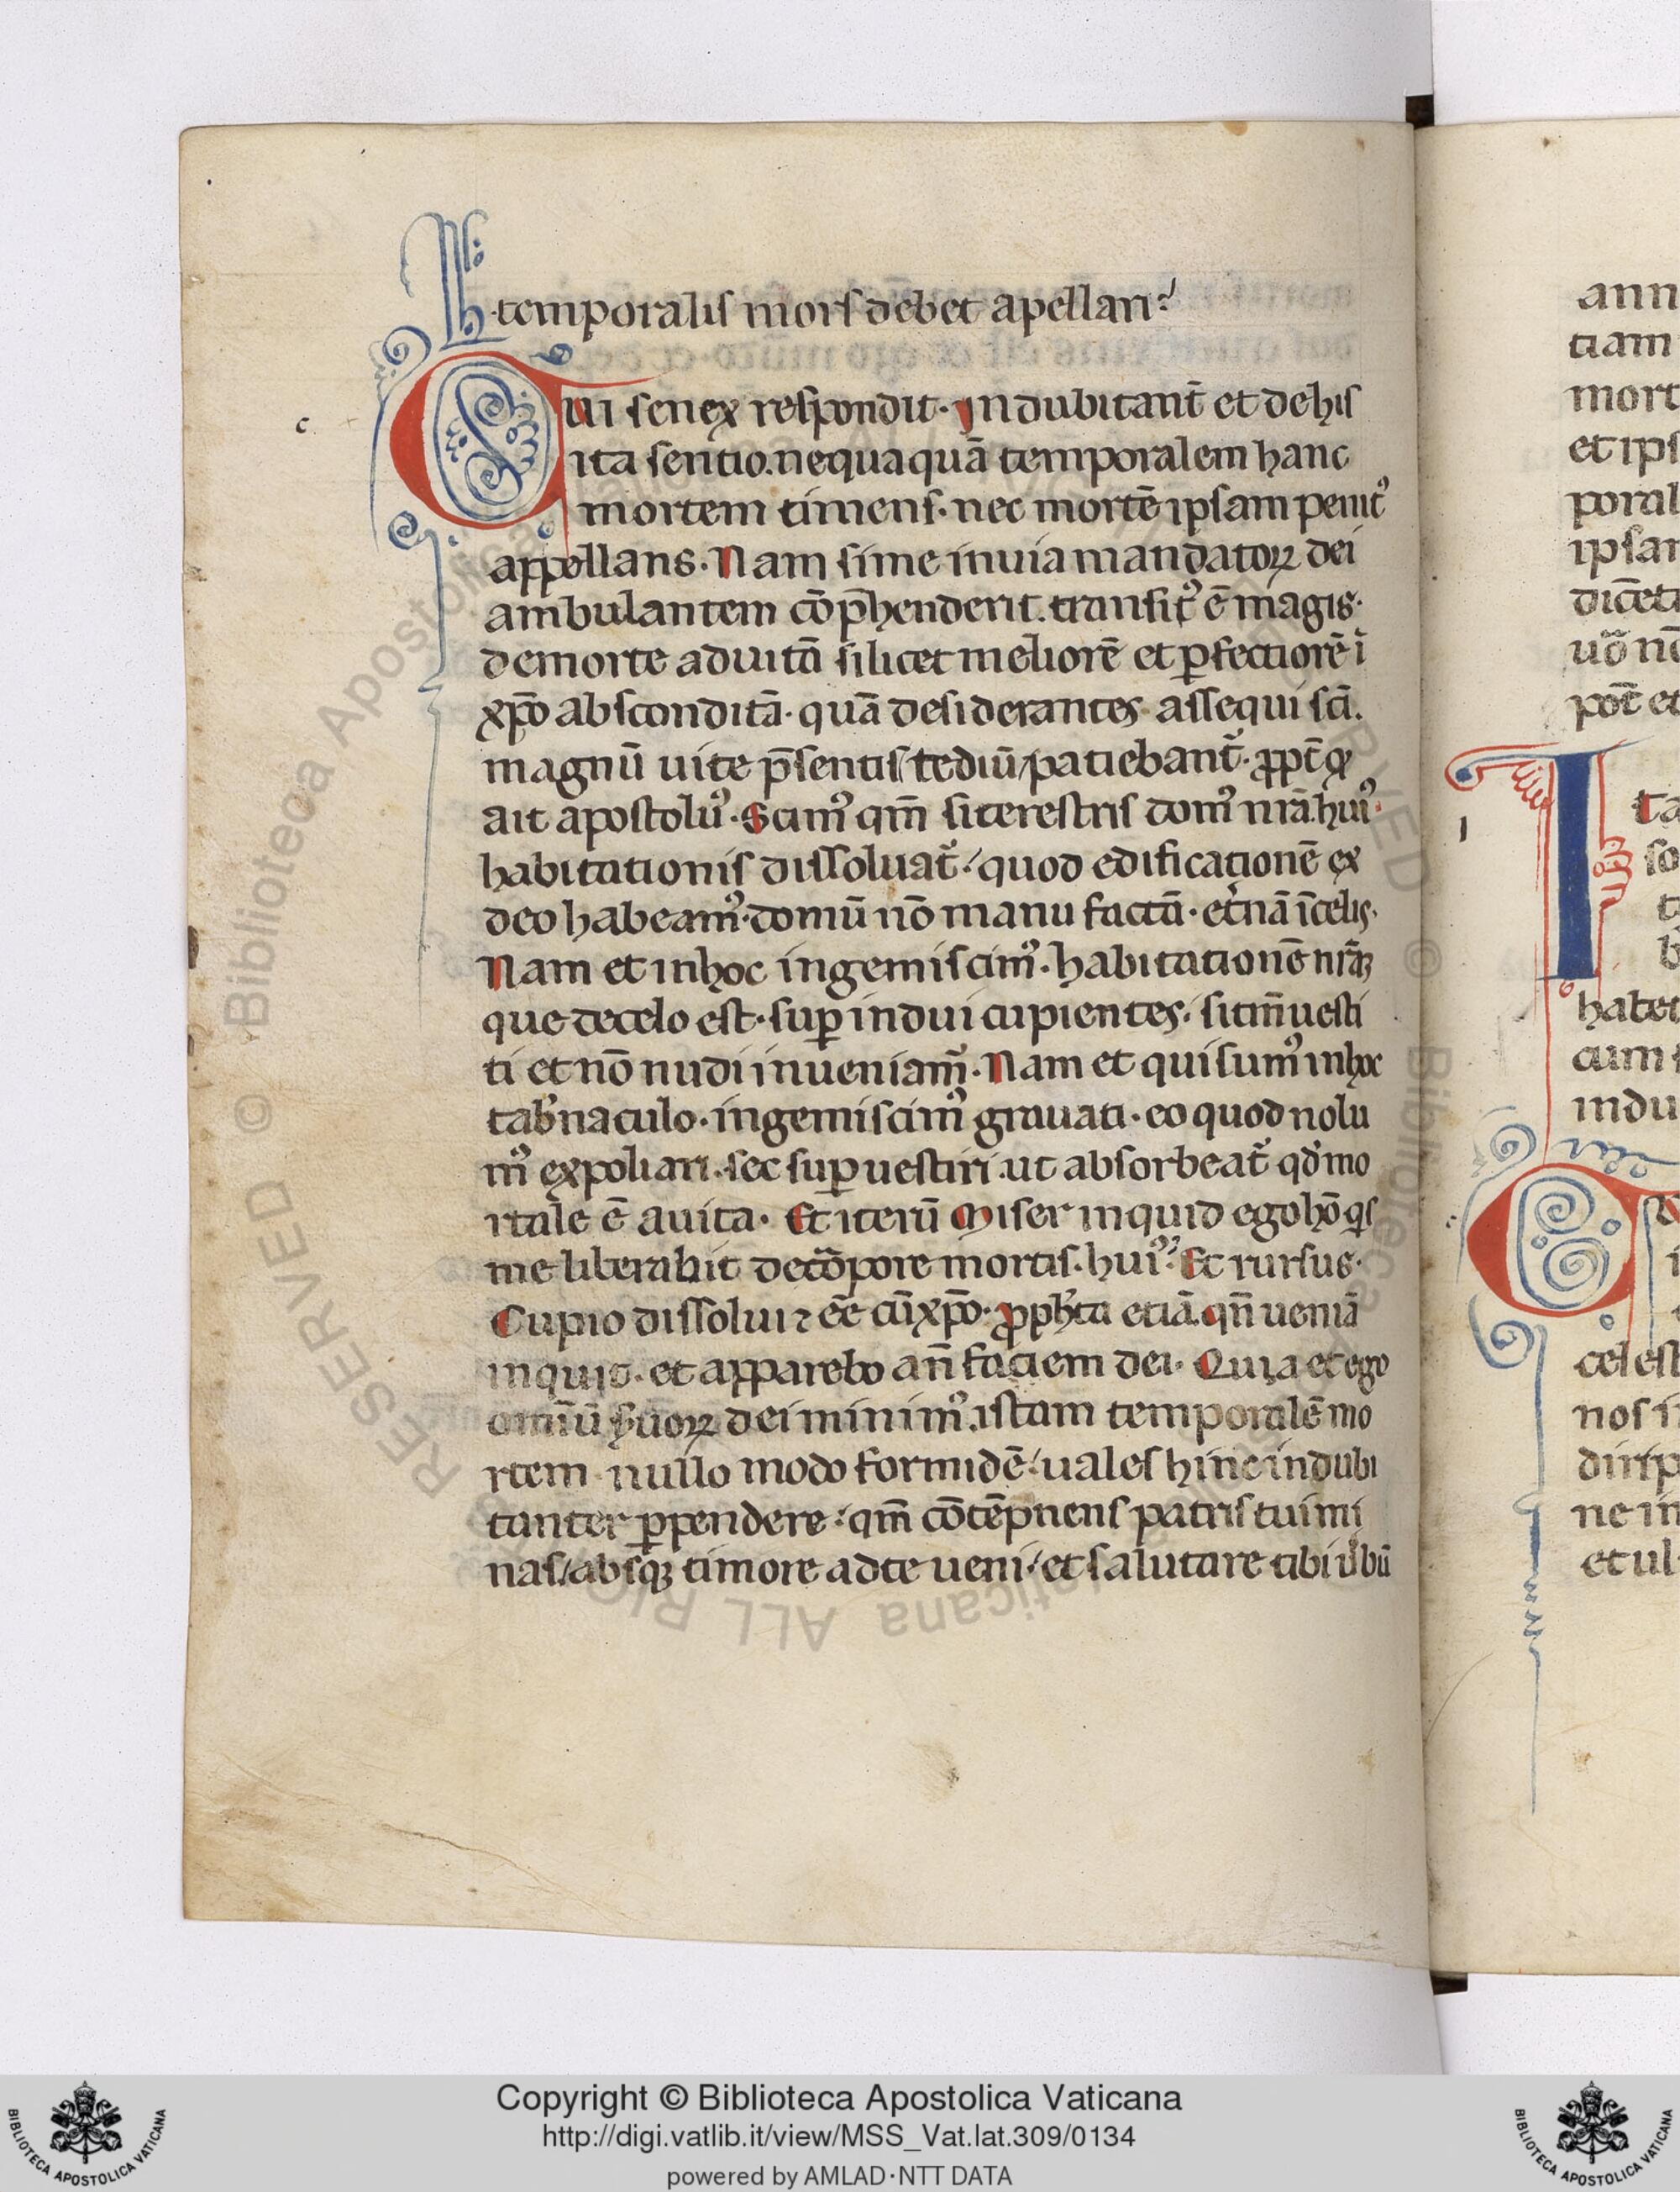 temporalis mors debet apellari?
c.
Cui senex respondit. Indubitant̄ et de his
ita sentio. nequaquā temporalem hanc
mortem timens. nec mortē ipsam penit᾽
appellans. Nam si me in uia mandatoꝝ dei
ambulantem cōp̄henderit. transit᾽ ē magis.
de morte ad uitā silicet meliorē et ꝑfectiorē ī
xp̄o absconditā. quā desiderantes assequi sc̄i.
magnū uite p̄sentis tediū/patiebant̄. ꝓpt̄ qͦ
ait apostolu᾽. Scim᾽ qm̄ si terestris dom᾽ nr̄a. hui᾽
habitationis dissoluat̄ quod edificationē ex
deo habeam᾽. domū nō manu factā. et̓nā ī celis.
Nam et in hoc ingemiscim᾽. habitationē nr̄aꝫ
que de celo est. suꝑindui cupientes. si tm̄ uesti
ti et nō nudi inueniam᾽. Nam et qui sum᾽ in hoc
tab̓naculo. ingemiscim᾽ grauati. eo quod nolu
m᾽ expoliari. sec suꝑuestiri. ut absorbeat̄ qd̓ mo
rtale ē a uita. Et iterū Miser inquid ego hō qis
me liberabit de cōpore mortis. hui᾽? Et rursus.
Cupio dissolui ⁊ eē cū xp̄o. ꝓph̓ta etiā. qn̄ ueniā
inquid. et apparebo an̄ faciem dei. Quia et ego
omīū s̓uoꝝ dei minim᾽. istam temporalē mo
rtem nullo modo formidē uales hinc indubi
tanter ꝑpendere qm̄ cōtēpnens patris tui mi
nas/absqꝫ timore ad te ueni/et salutare tibi u̓bū
ann
tiam
mort
et ips
poral
ipsa
dicēt
uō nō
pōt et
I
ta
so
t
b
habet
cum
indu
c.
i
celest
nos i
dirip
ne in
et ul
Copyright © Biblioteca Apostolica Vaticana
http://digi.vatlib.it/view/MSS_Vat.lat.309/0134
powered by AMLAD·NTT DATA
BIBLIOTECA APOSTOLICA VATICANA
BIBLIOTECA APOSTOLICA VATICANA